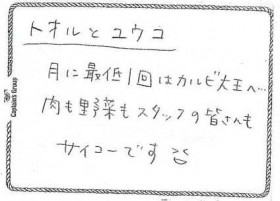 トオルとユウコ
月に最低1回はカルビ大王へ…
肉も野菜もスタッフの皆さんも
サイコーです
Captains Group